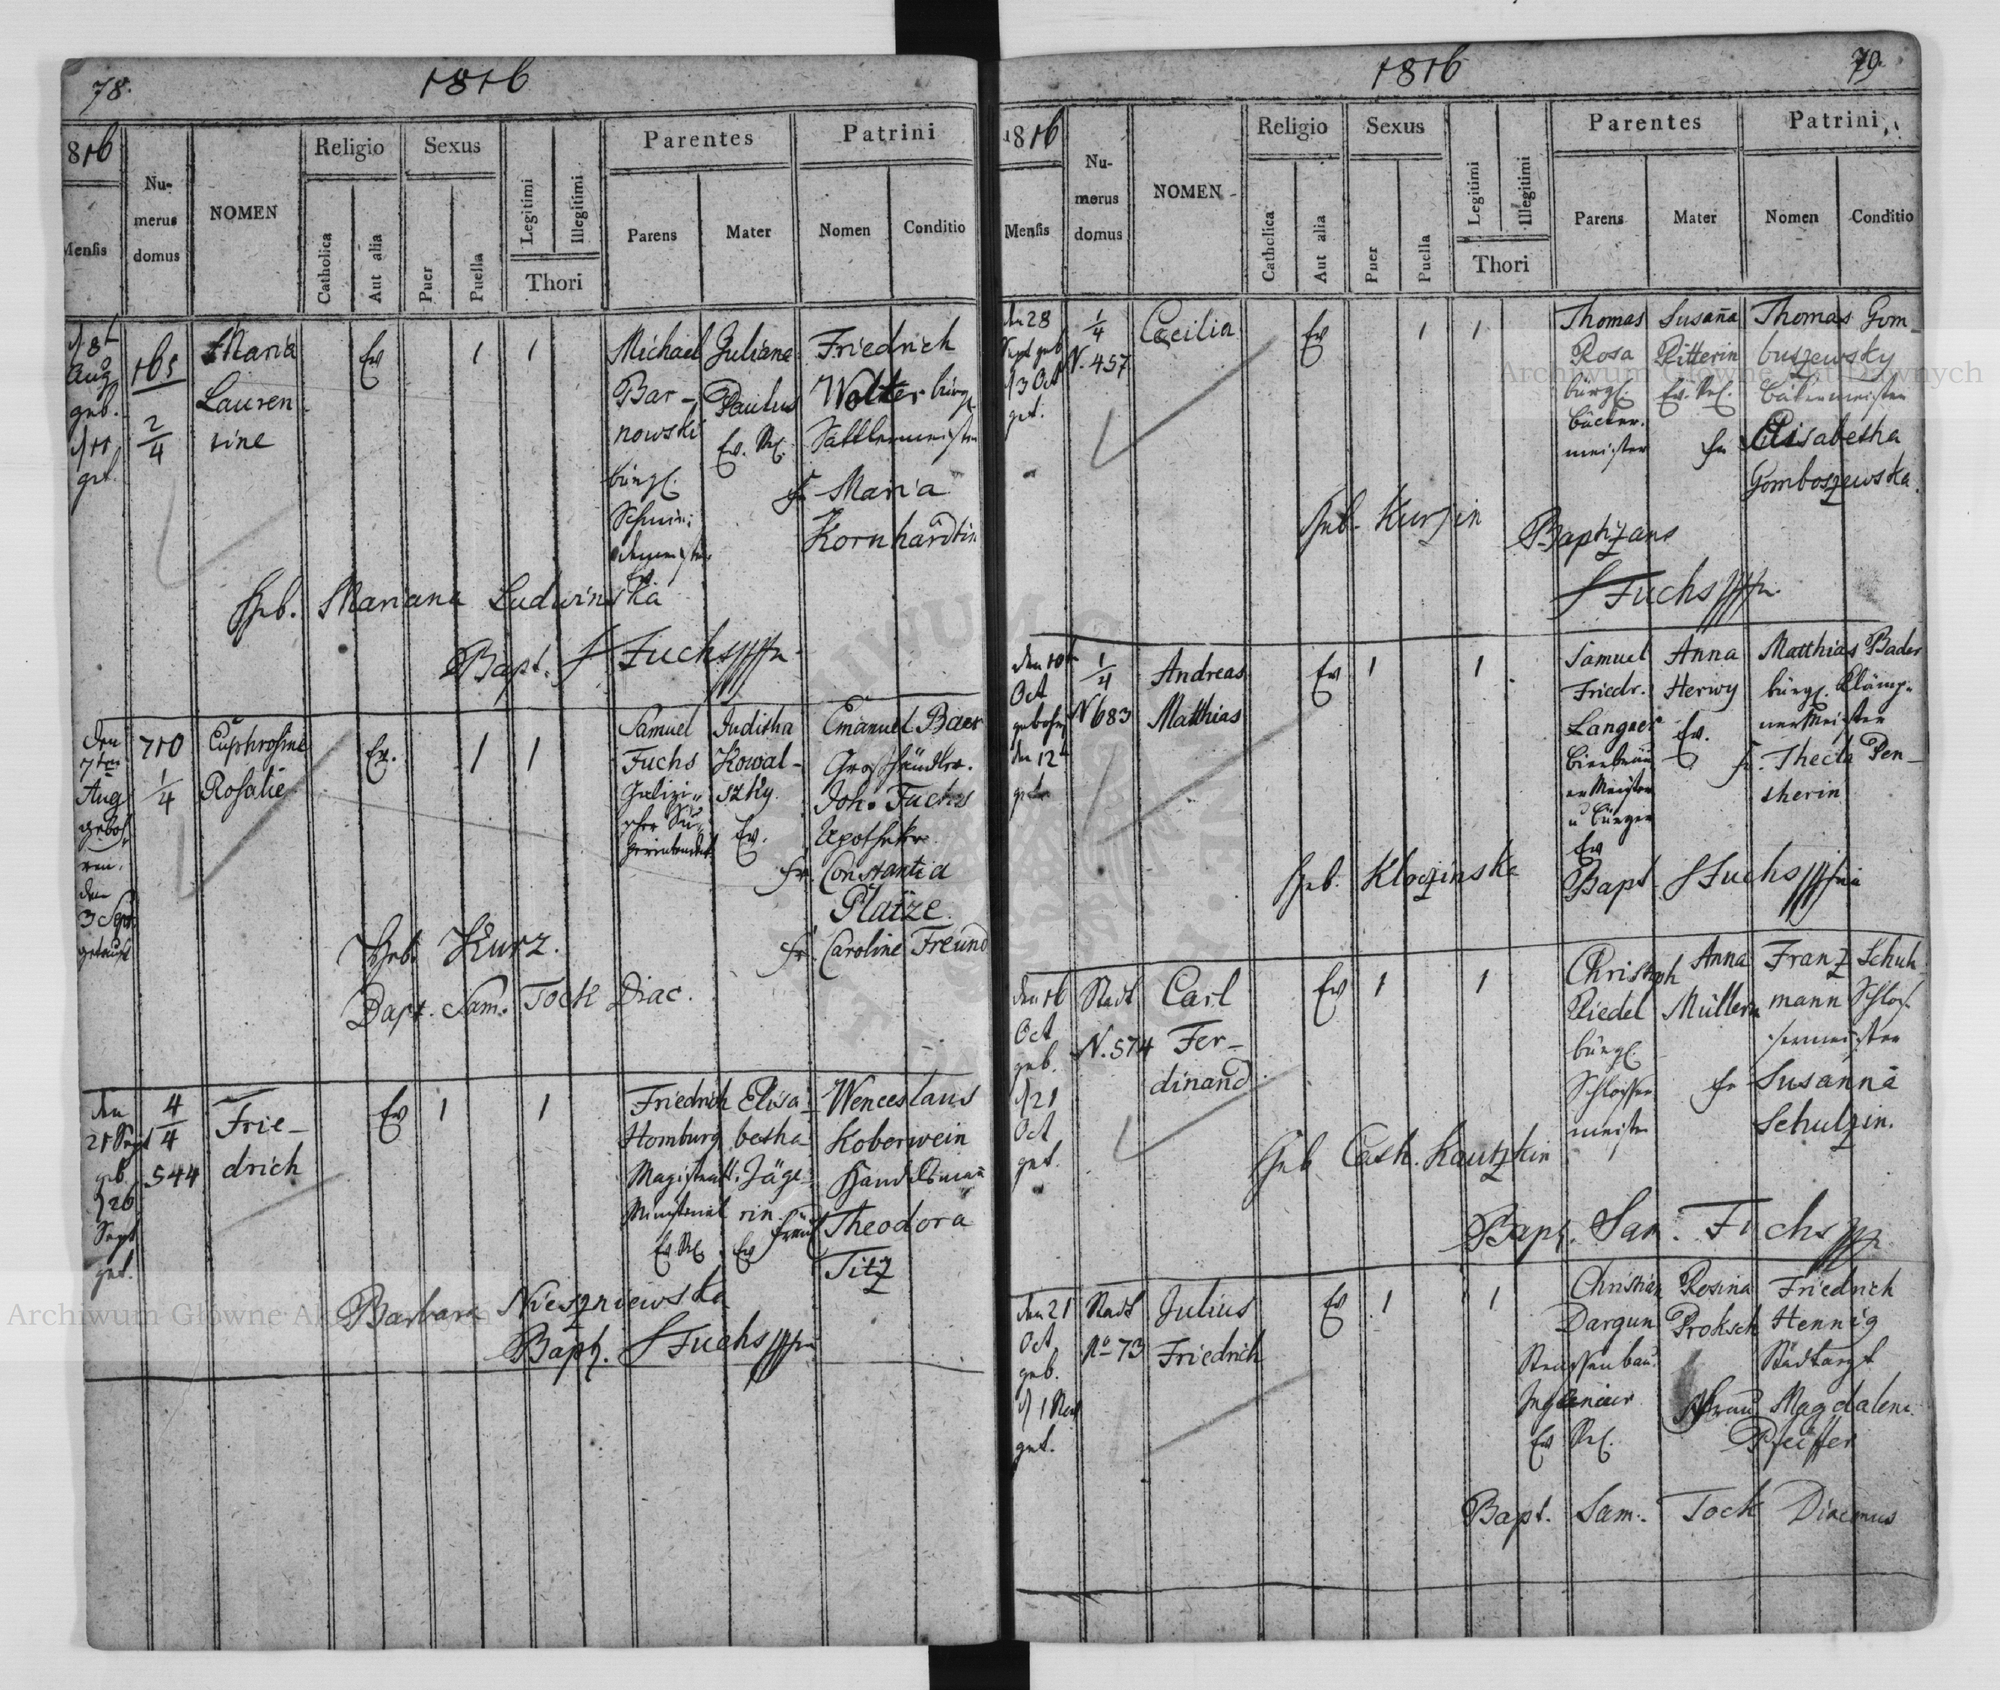 78.
1816
1816
Mensis
Numerus domus
NOMEN
Religio
Catholica
Aut alia
Sexus
Puer
Puella
Legitimi
Illegitimi
Thori
Parentes
Parens
Mater
Patrini
Nomen
Conditio
d 8t
Aug
geb.
d 11
get.
165
2/4
Maria
Lauren
tine
Ev
1
1
Michael
Bar-
nowski
bürgl.
Juliana
Paulus
Ev. Rel.
Friedrich
Wolter bürgl.
Sattlermeister
fr Maria
Kornhardtin
Heb. Mariana Ludwinska
Bapt. S Fuchs
den
7ten
Aug
geboh
ren.
den
3 Sept
getauft
710
1/4
Euphrosine
Rosalie
Ev.
1
1
Samuel
Fuchs
Galizi-
scher Su-
perintendent
Juditha
Kowal-
szky
Ev.
Emanuel Baer
Großhändler.
Joh. Fuchs
Apotheker
fr. Constantia
Platze.
fr. Caroline Freund
Heb. Kurz.
Bapt. Sam. Tock Diac.
den
21 Sept
geb.
d 26
Sept
get.
4/4
544
Frie-
drich
Ev
1
1
Friedrich
Homburg
Magistrat
Ev Rel.
Elisa-
betha
Jäge-
rin
Ev
Wenceslaus
Koberwein
Handelsmann
frau Theodora
Titz
Barbara Nieszniewska
Bapt. S Fuchs
1816
79.
1816
Mensis
Numerus domus
NOMEN
Religio
Catholica
Aut alia
Sexus
Puer
Puella
Legitimi
Illegitimi
Thori
Parentes
Parens
Mater
Patrini
Nomen
Conditio
den 28
Sept geb
d 3 Oct
get.
1/4
N. 457
Caecilia
Ev
1
1
Thomas
Rosa
bürgl.
bäcker-
meister
Susaña
Ritterin
Ev. Rel.
Thomas Gom-
buszewsky
bäkermeister
fr Elisabetha
Gomboszewska.
Heb. Kurzin
Baptizans
S Fuchs
den 10t
Oct
gebohren
den 12t
get.
1/4
N 683
Andreas
Matthias
Ev
1
1
Samuel
Friedr.
Langner
Bierbräu
er Meister
u Bürger
Ev
Anna
Herwy
Ev.
Matthias Bader
bürgl. Klämp-
ner Meister
fr. Thecla Pen-
therin
Heb. Kloczinska
Bapt S Fuchs
den 16
Oct
geb.
d 21
Oct
get.
Stadt
N. 574
Carl
Fer-
dinand
Ev
1
1
Christoph
Riedel
bürgl.
Schlosser
meister
Anna
Müllerin
Franz Schuh-
mann Schlos-
sermeister
fr Susanna
Schulzin.
Heb Cath. Kautzkin
Bapt. Sam. Fuchs
den 21
Oct
geb.
d 1 Nov
get.
Stadt
No 73
Julius
Friedrich
Ev
1
1
Christian
Dargun
Strassenbau
Ingenieur
Ev Rel.
Rosina
Proksch
Friedrich
Hennig
Stadtarzt
frau Magdalena
Pfeiffer
Bapt. Sam. Tock Diaconus
Archiwum Główne Akt Dawnych
Archiwum Główne Akt Dawnych